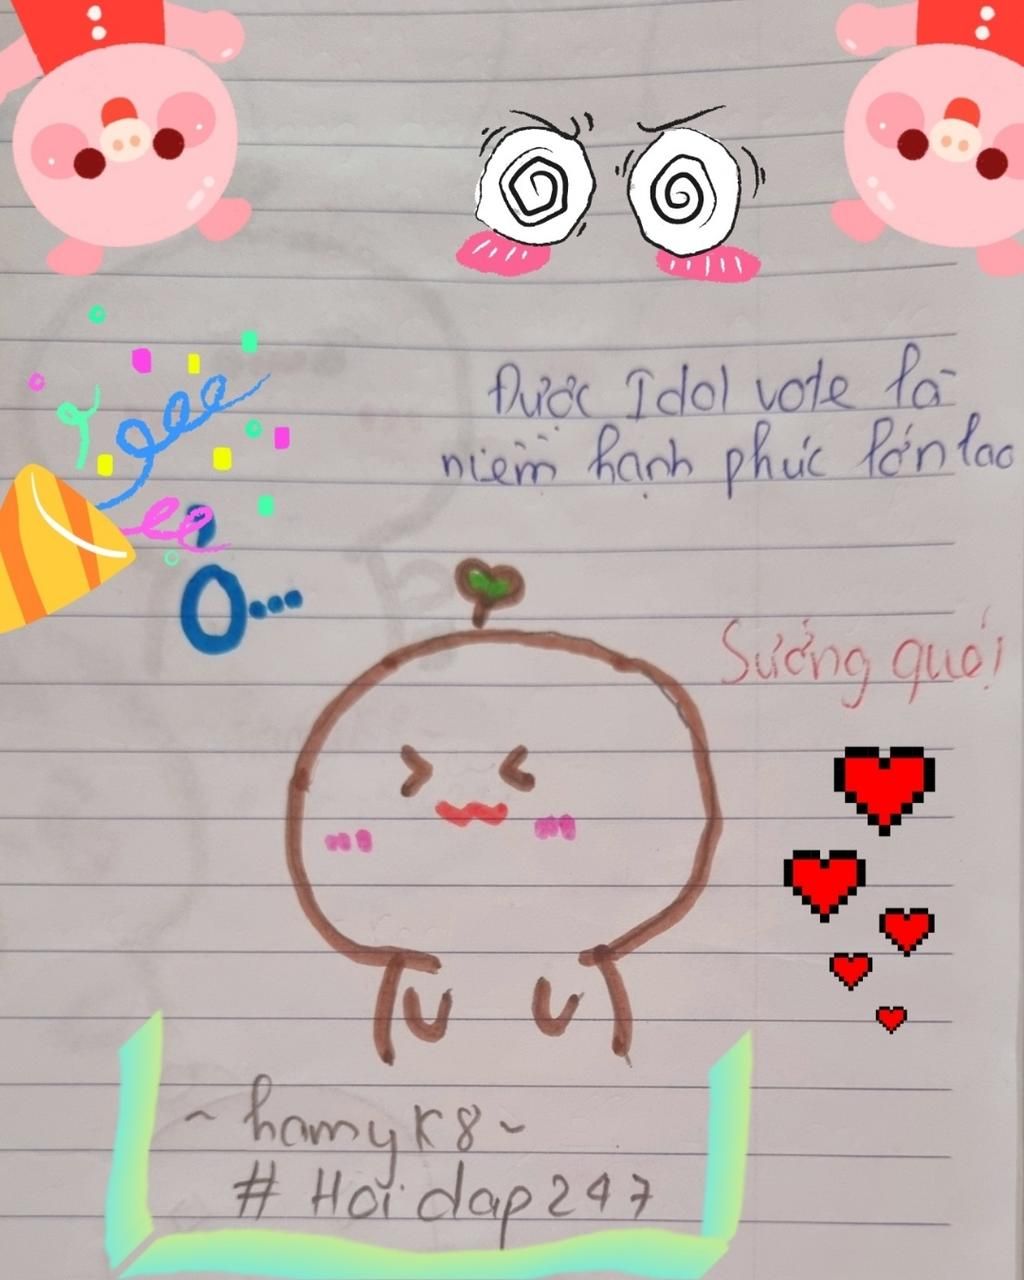 Được Idol vote là
niềm hạnh phúc lớn lao
Ơ...
Sướng quá!
~ hamyk8 ~
# Hoidap247